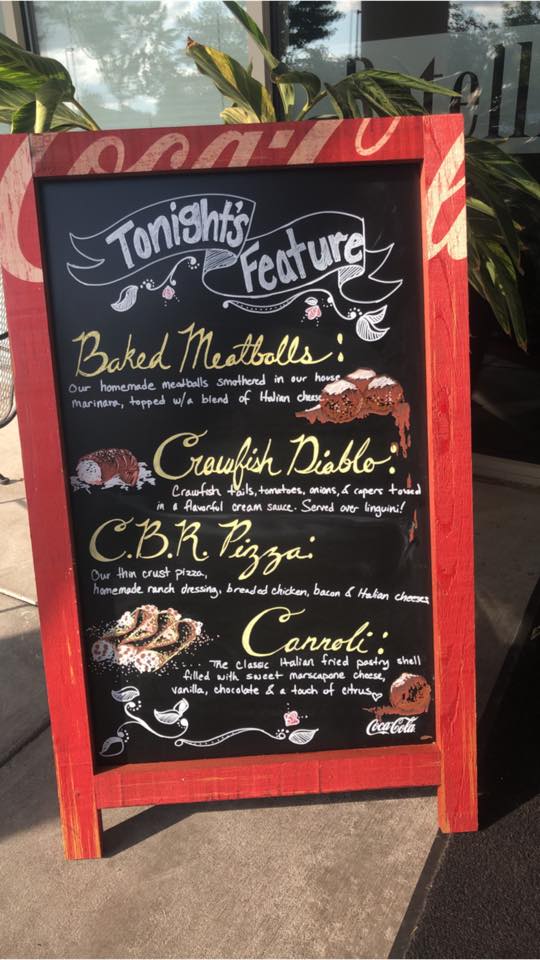 Coca-Cola
Botelli
Tonight's
Feature
Baked Meatballs:
Our homemade meatballs smothered in our house
marinara, topped w/a blend of Italian cheese
Crawfish Diablo:
Crawfish tails, tomatoes, onions, & capers tossed
in a flavorful cream sauce. Served over linguini!
C.B.R. Pizza:
Our thin crust pizza,
homemade ranch dressing, breaded chicken, bacon & Italian cheeses
Cannoli:
The classic Italian fried pastry shell
filled with sweet marscapone cheese,
vanilla, chocolate & a touch of citrus
Coca-Cola